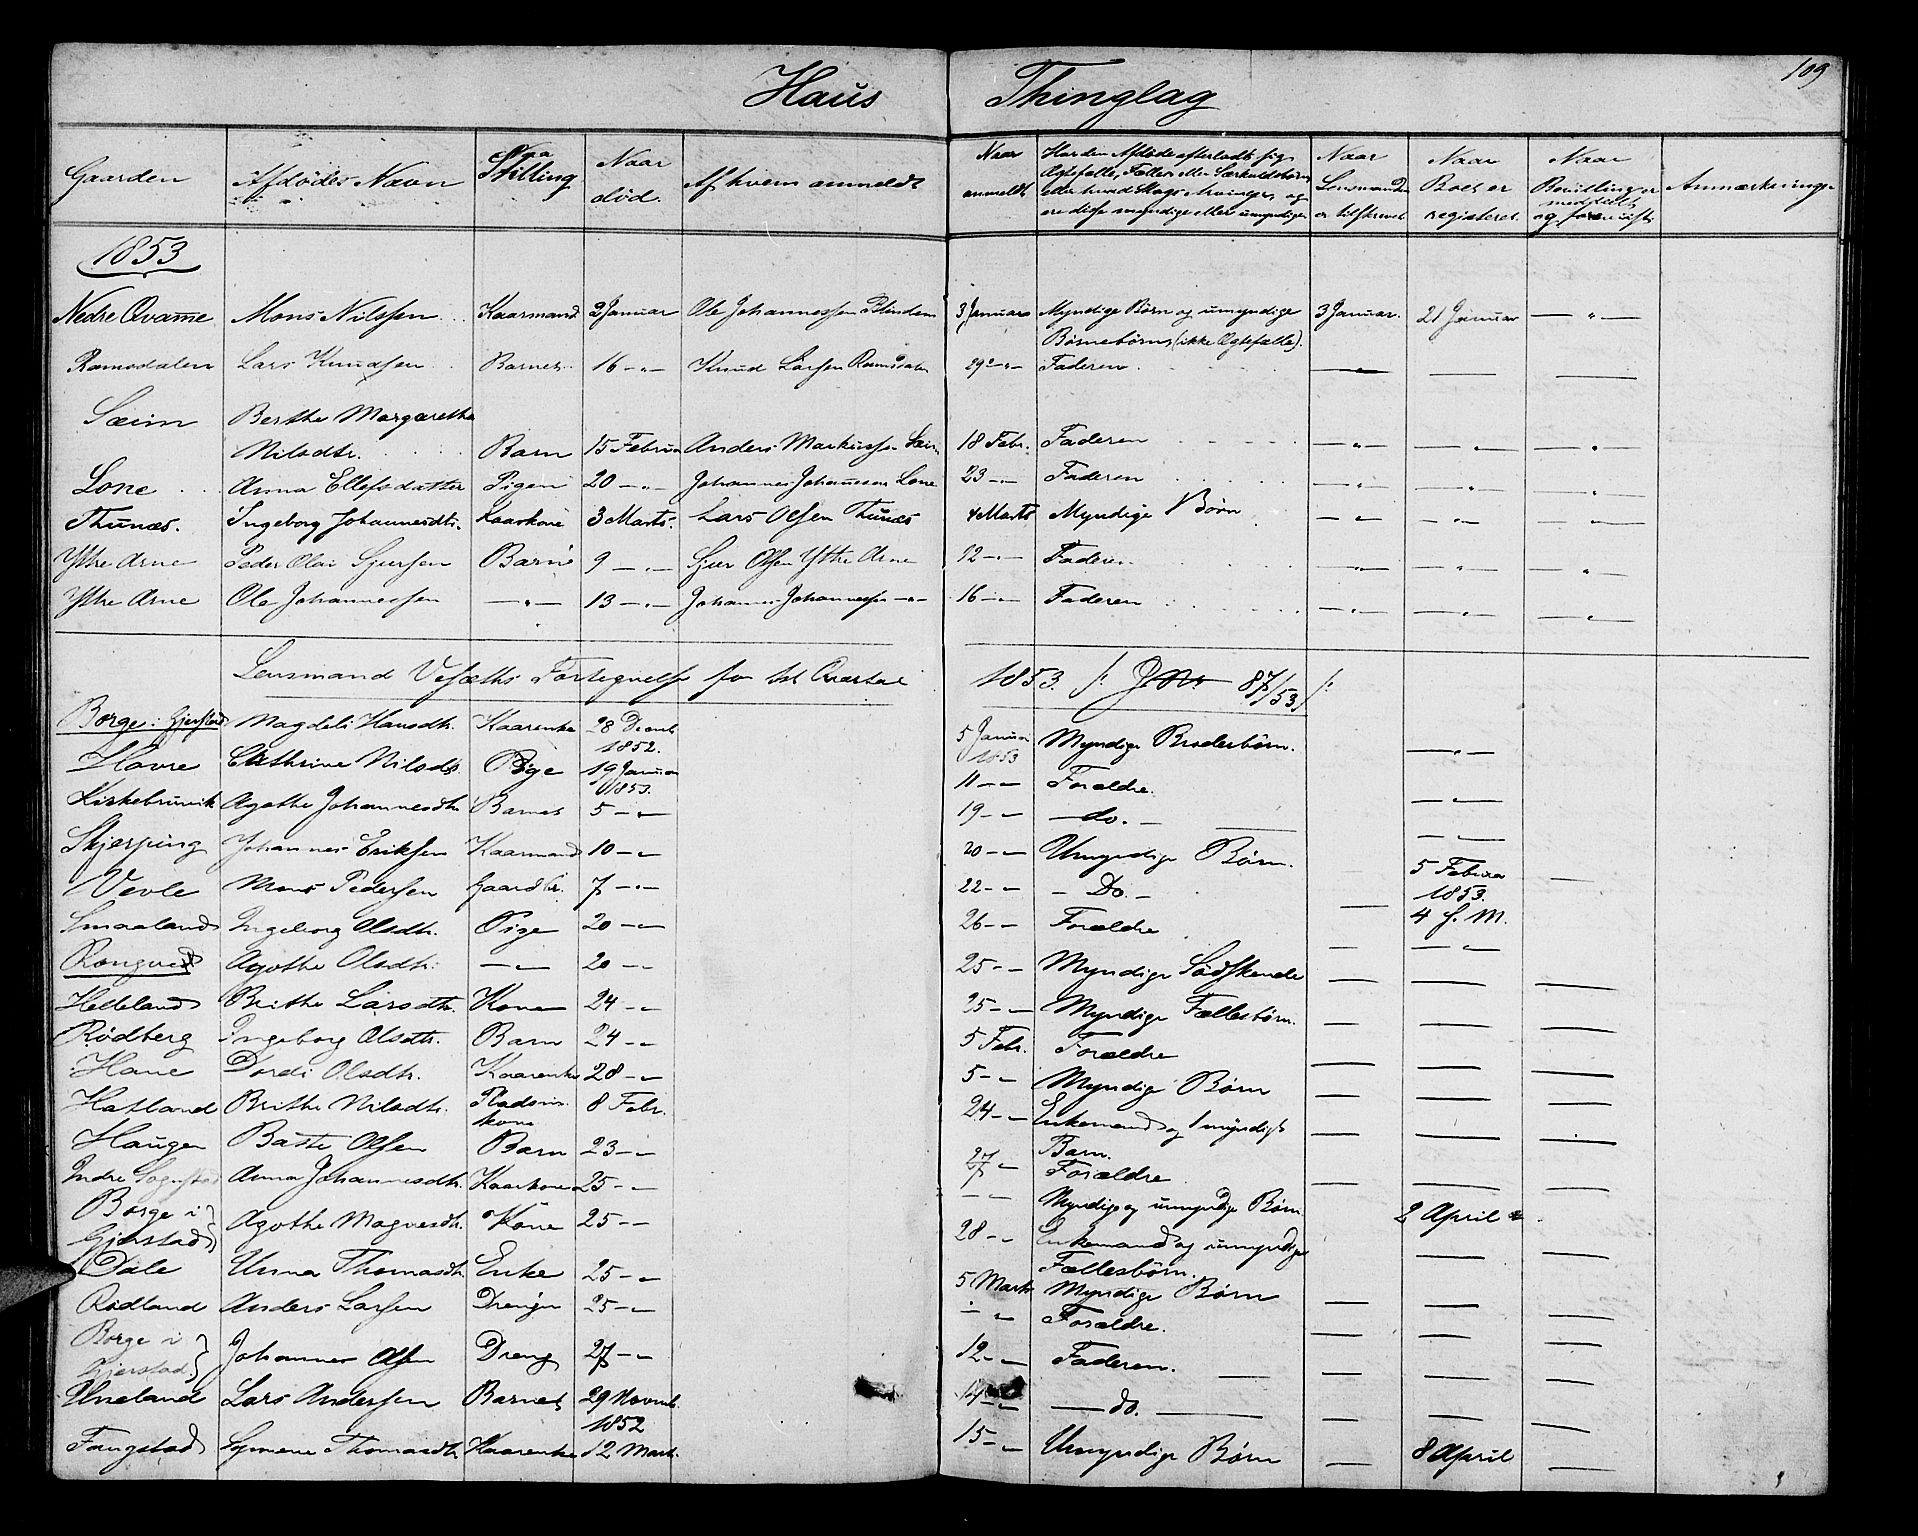 109
Haus Thinglag
Gaarden Afdødes Navn Stilling Naar død. Af hvem anmeldt Naar anmeldt Har den Afdøde efterladt sig Ægtefælle, Fælles eller Særkuldsbørn, eller hvad Slags Arvinger, og ere disse myndige eller umyndige Naar Lensmanden er tilskrevet Naar Boet er registeret. Naar Bevilling er meddelt og Anmærkning
1853
Nedre Qvamme Mons Nilssen Kaarmand 2 Januar Ole Johannessen Blindem 3 Januar Myndige Børn og umyndige 3 Januar. 21 Januar — " —
Børnebørn (ikke Ægtefælle).
Ramsdalen Lars Knudsen Barnet 16 — " — Knud Larsen Ramsdalen 29 — " — Faderen — — —
Sæim Berthe Margarethe
Nilsdtr. Barn 15 Februar Anders Markussen Sæim 18 Febr. Faderen — " — — " — — " —
Lone Anna Ellefsdatter Pigen 20 — " — Johannes Johannessen Lone 23 — " — Faderen — " — — " — — " —
Thunæs. Ingeborg Johannesdtr. Kaarkone 3 Marts. Lars Olsen Thunæs 4 Marts Myndige Børn — " — — " — — " —
Ytre Arne Peder Olai Sjursen Barne 9 — " — Sjur Olsen Ytre Arne 12 — " — Faderen — " — — " — — " —
Ytre Arne Ole Johannessen — " — 13 — " — Johannes Johannessen — " — 16 — " — Faderen — " — — " — — " —
Lensmand Fortegnelse for 1st Qvartal 1853. /: J.No. 87/53 /:
Borge i Gjerstad Magdeli Hansdtr. Kaarenke 28 Decemb 1852. 5 Januar 1853 Myndige Broderbørn. — " —
Havre Cathrine Nilsdtr. Pige 19 Januar 1853. 11 — " Forældre. — " —
Kirkebruvik Agathe Johannesdtr. Barnet 5 — " — 19 — " — do. — — " —
Skjerping Johannes Eriksen Kaarmand 10 — " — 20 — " Umyndige Børn. 5 Februar 1853. —
Vevle Mons Pedersen Gaardbr. 7 — " — 22 — " — Do. — — 4 f. M.
Smaaland Ingeborg Olsdtr. Pige 20 — " 26 — " Forældre — — " —
Agathe Olsdtr. — " — 20 — " 25 — " Myndige Sødskende — — —
Helleland Brithe Larsdtr. Kone 24 — " 25 — " Myndige Fællesbørn. — — —
Rødberg Ingeborg Olsdtr. Barn 24 — " 5 Febr. Forældre — — —
Hane Dordi Olsdtr. Kaarenke 28 — " 5 — " Myndige Børn — — —
Hatland Brithe Nilsdtr. kone 8 Febr. 24 — " Enkemand og 1 myndigt Barn. — — —
Haugen Olsen Barn 23 — " 27 — " Forældre — — —
Indre Anna Johannesdtr. Kaarkone 25 — " — " Myndige og umyndige Børn 2 April
Borge i Gjerstad Agathe Magnesdtr. Kone 25 — " 28 — " Enkemand og umyndige Fællesbørn. — —
Dale Unna Thomasdtr. Enke 25 — " 5 Marts Myndige Børn — — —
Rødland Anders Larsen Drengen 25 — " — " Forældre. — — —
Borge i Gjerstad Johannes Olsen Dreng 27 — " 12 — " Faderen. — — —
Lars Andersen Barnet 29 Novemb. 1852 14 — " — do. — — — —
Synneve Thomasdtr. Kaarenke 12 Marts. 15 — " Umyndige Børn — 8 April —